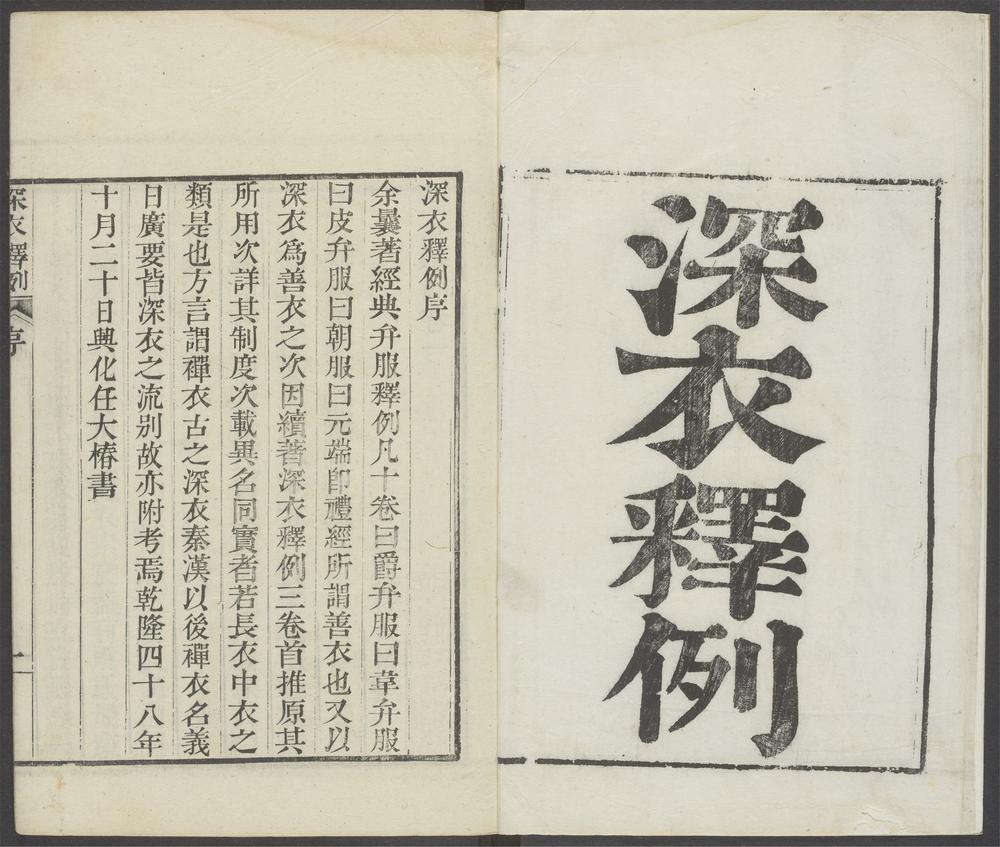 深衣釋例
深衣釋例序
余曩著經典弁服釋例凡十卷曰爵弁服曰韋弁服
曰皮弁服曰朝服曰元端卽禮經所謂善衣也又以
深衣爲善衣之次因續著深衣釋例三卷首推原其
所用次詳其制度次載異名同實者若長衣中衣之
類是也方言謂襌衣古之深衣秦漢以後襌衣名義
日廣要皆深衣之流别故亦附考焉乾隆四十八年
十月二十日興化任大椿書
深衣釋例 序 一